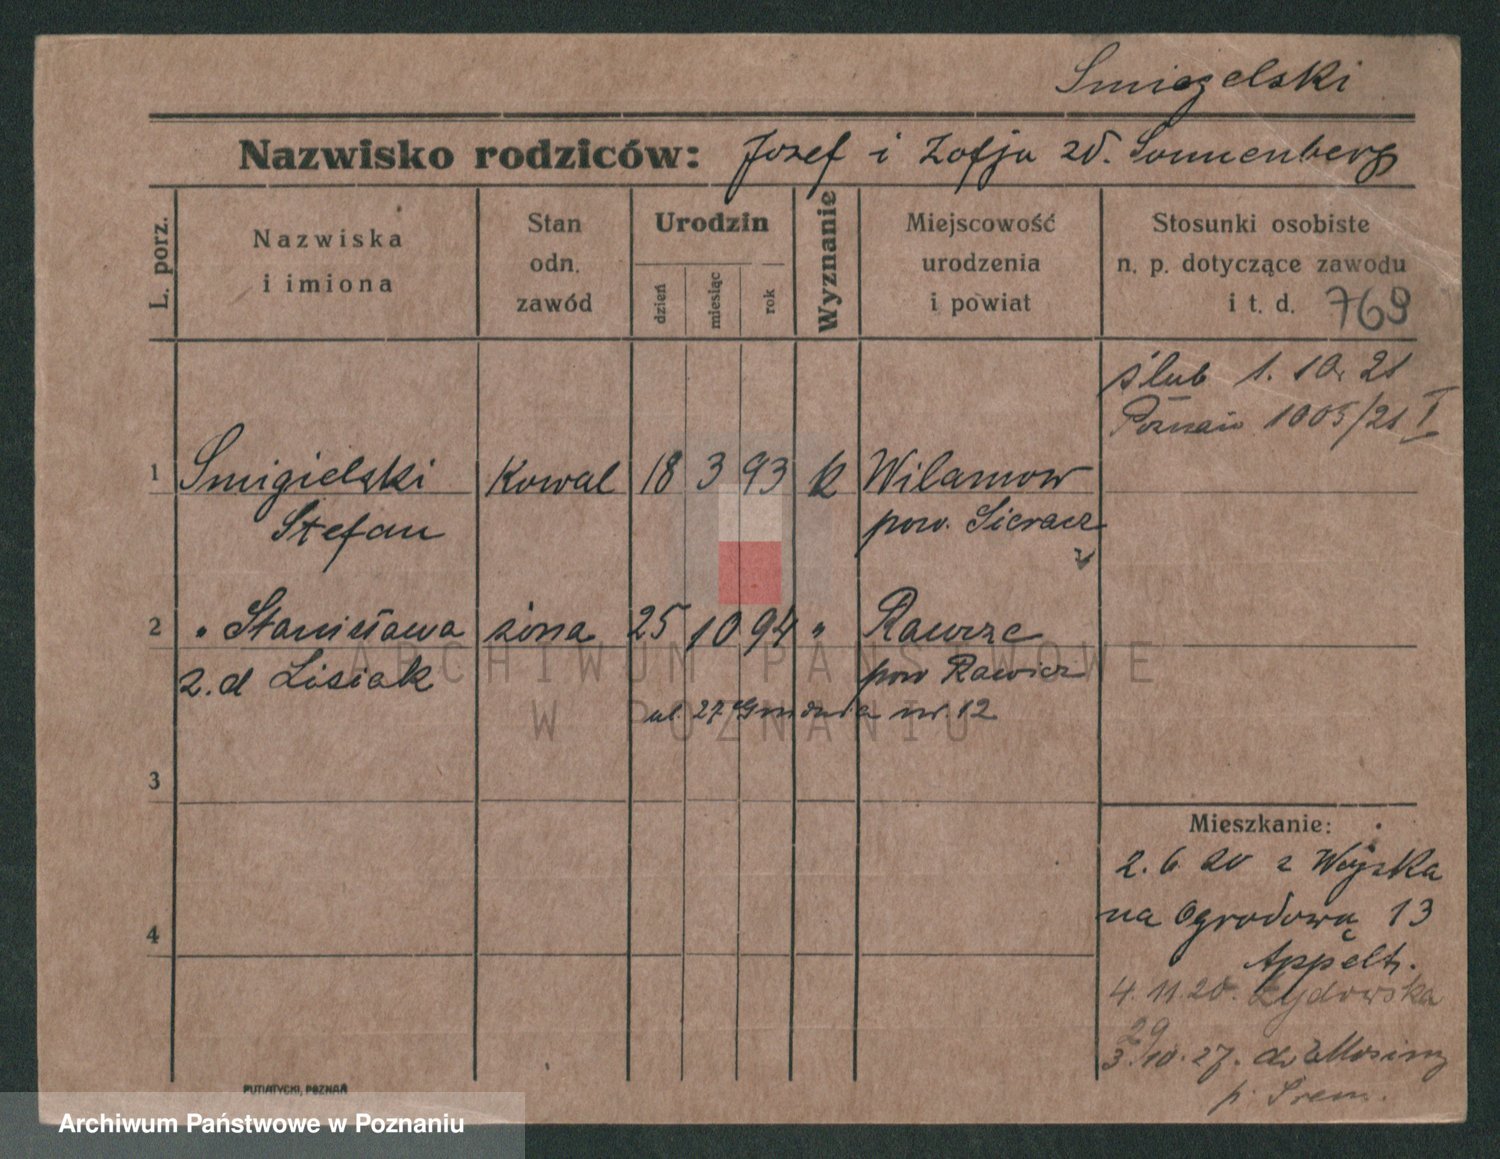 Smigelski
Nazwisko rodziców: Jozef i Zofja zd. Sonnenberg
L. porz.
Nazwiska
i imiona
Stan
odn.
zawód
Urodzin
dzień
miesiąc
rok
Wyznanie
Miejscowość
urodzenia
i powiat
Stosunki osobiste
n. p. dotyczące zawodu
i t. d. 769
ślub 1. 10. 21
Poznań 1005/21 I
1 Smigielski Kowal 18 3 93 k Wilamow
Stefan pow. Sieradz
2 " Stanisława żona 25 10 94 " Rawicz
z. d Lisiak pow Rawicz
ul. 27 Grudnia nr. 12
3
4
Mieszkanie:
2. 6 20 z Wojska
na Ogrodową 13
Appelt.
4. 11. 20. Żydowska
29
3. 10. 27. do Mosiny
p. Śrem.
PUTIATYCKI, POZNAŃ
ARCHIWUM PAŃSTWOWE
W POZNANIU
Archiwum Państwowe w Poznaniu